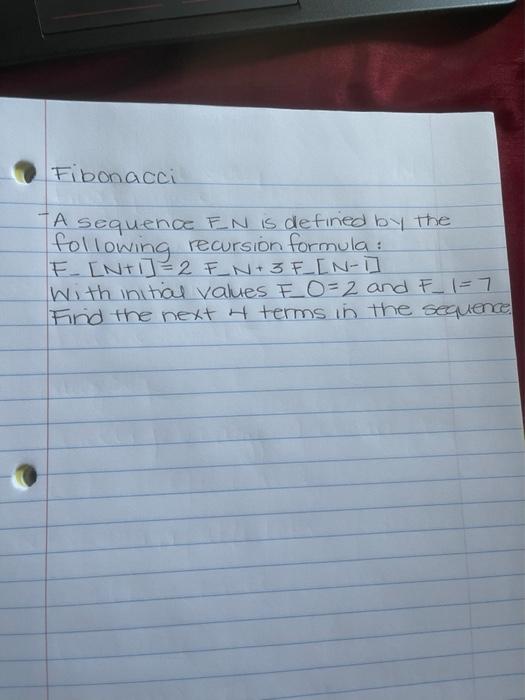 Fibonacci
- A sequence F_N is defined by the
following recursion formula:
F_[N+1]=2 F_N+3 F_[N-1]
With initial values F_0=2 and F_1=7
Find the next 4 terms in the sequence.